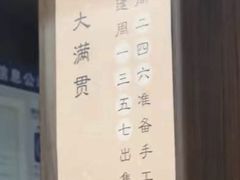 周二四六准备手工
逢周一三五七出售
大满贯
息公